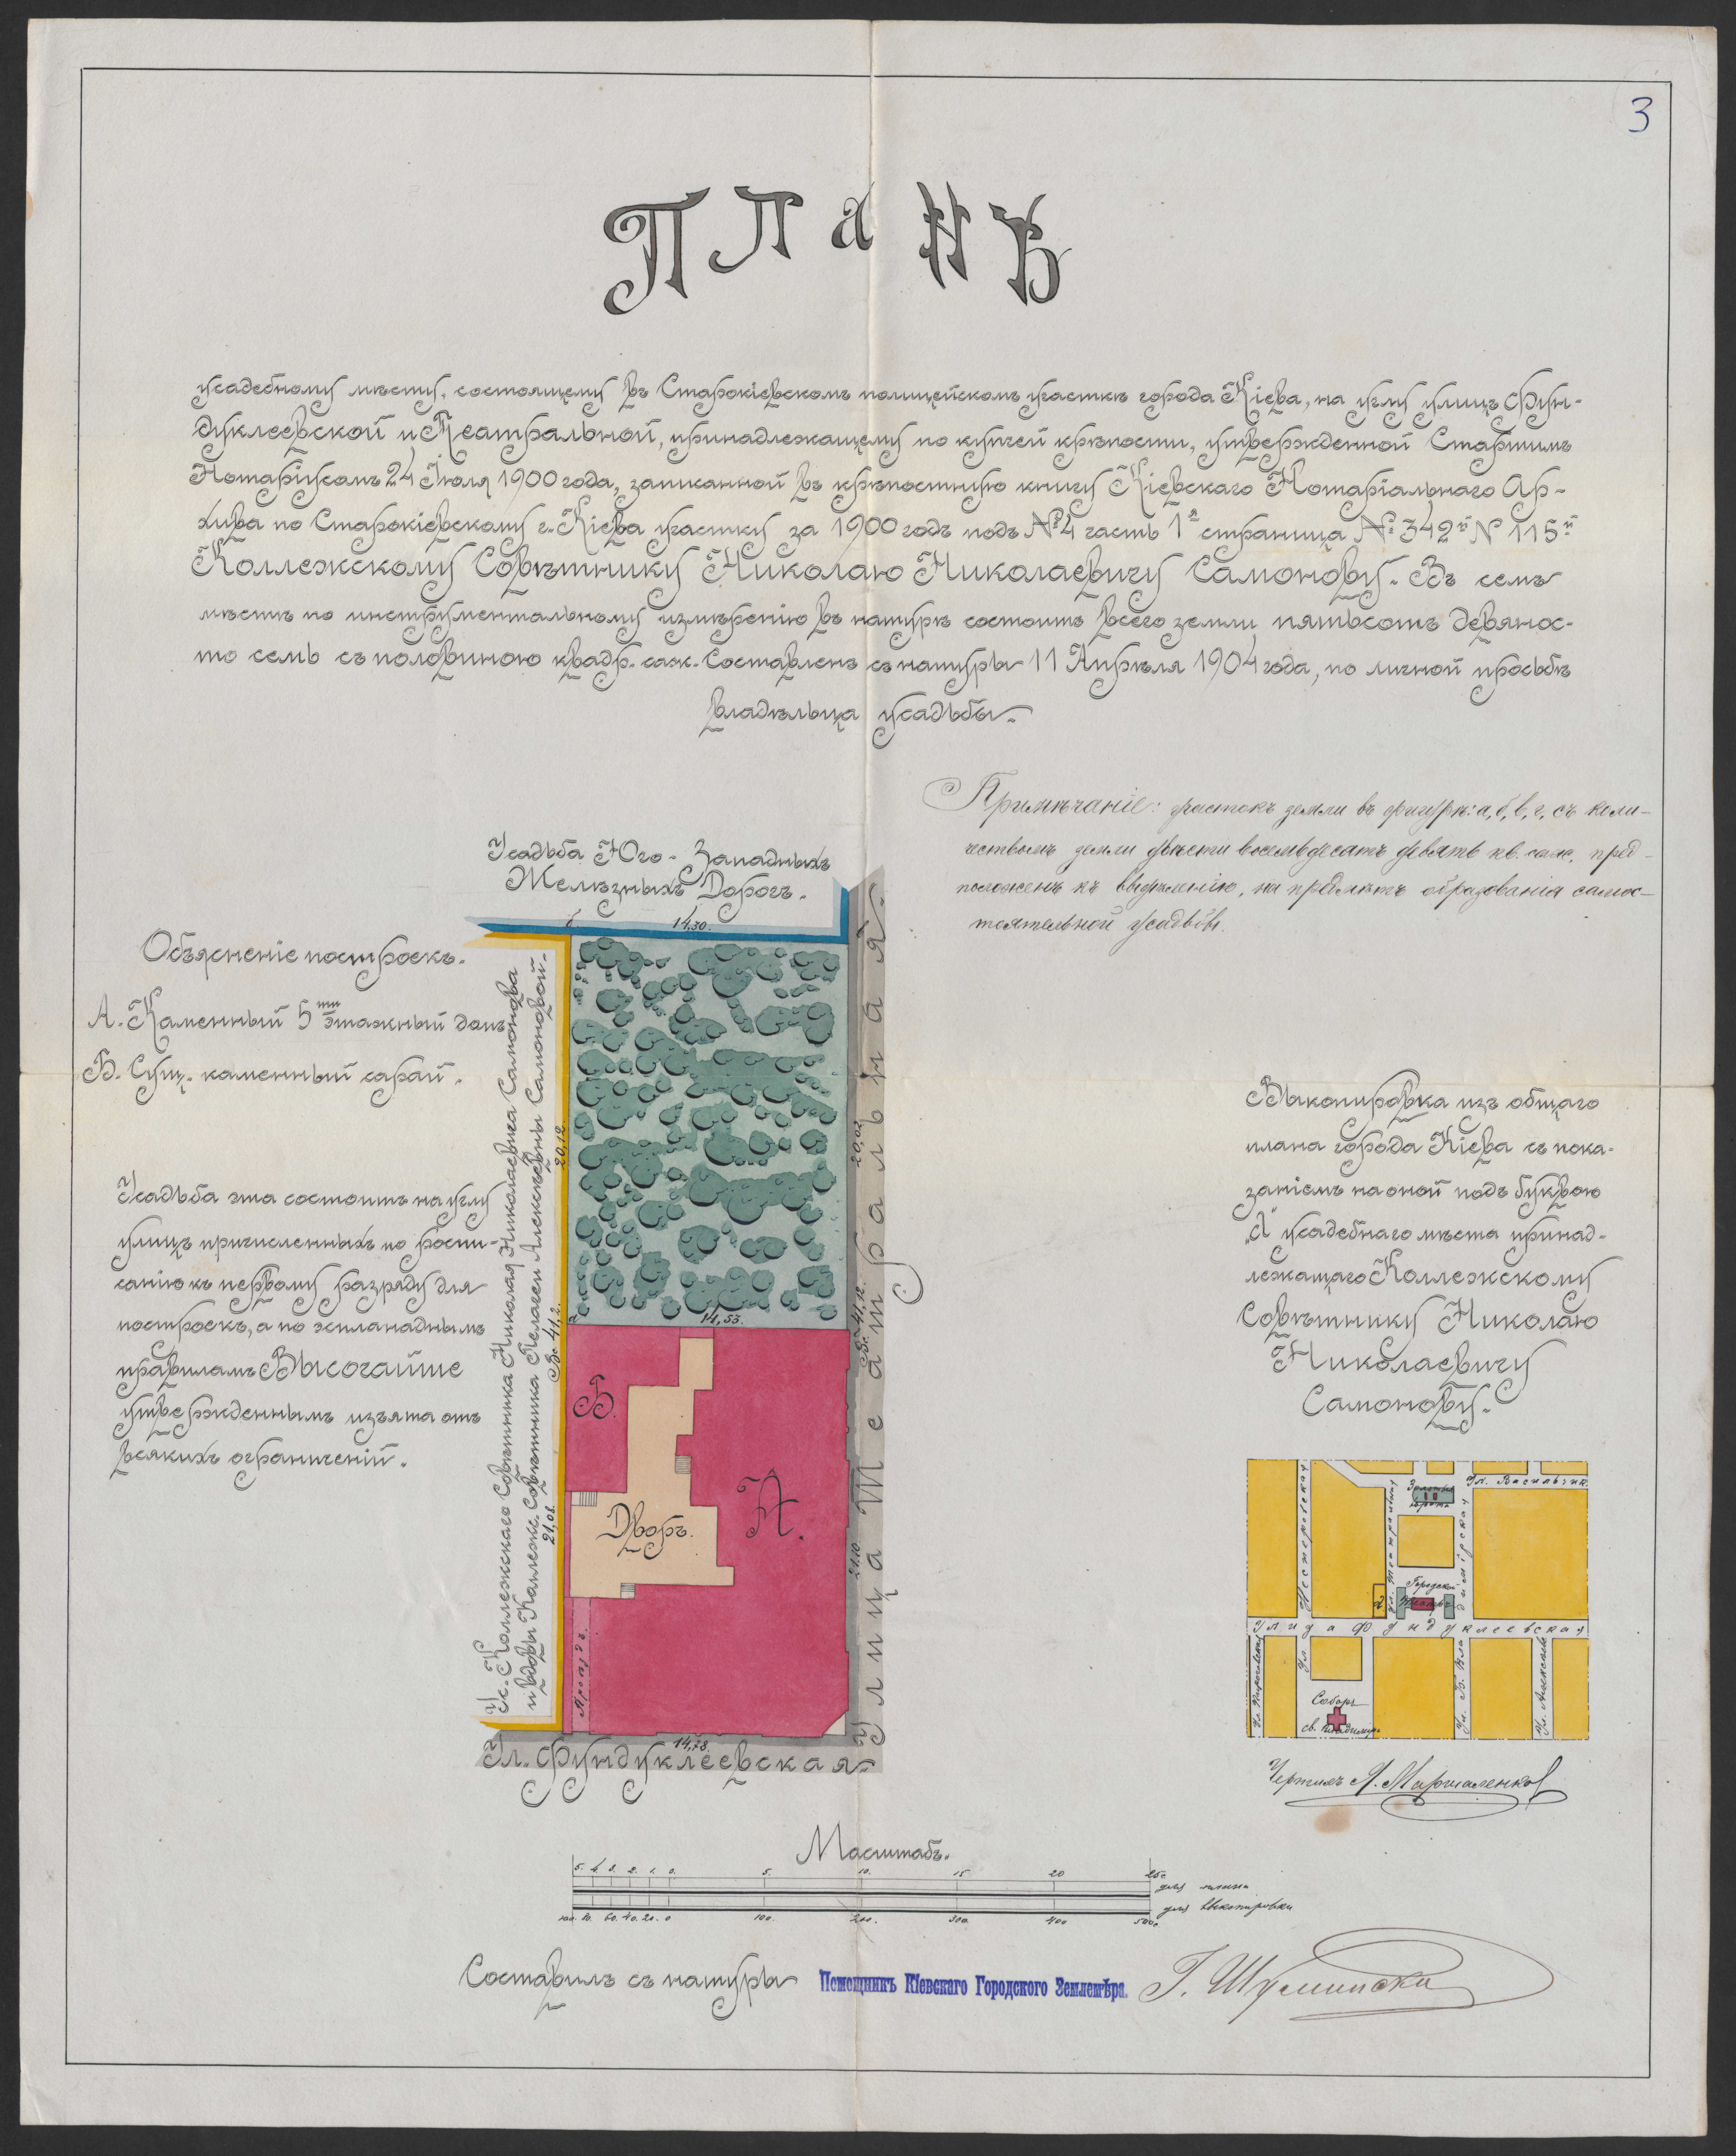 3
ПЛАНЪ
усадебному мѣсту, состоящему въ Старокіевскомъ полицейскомъ участкѣ города Кіева, на углу улицъ Фун-
дуклеевской и Театральной, принадлежащему по купчей крѣпости, утвержденной Старшимъ
Нотаріусомъ 24 Іюля 1900 года, записанной въ крѣпостную книгу Кіевскаго Нотаріальнаго Ар-
хива по Старокіевскому г. Кіева участку за 1900 годъ подъ №4 часть 1я страница № 342й N 115й
Коллежскому Совѣтнику Николаю Николаевичу Самонову. Въ семъ
мѣстѣ по инструментальному измѣренію въ натурѣ состоитъ всего земли пятьсотъ девянос-
то семь съ половиною квадр. саж. Составленъ съ натуры 11 Апрѣля 1904 года, по личной просьбѣ
владѣльца усадьбы.
Примѣчаніе: участокъ земли въ фигурѣ: а, б, в, г, съ коли-
чествомъ земли двѣсти восемьдесятъ девять кв. саж. пред-
положенъ къ выдѣленію, на предметъ образованія самос-
тоятельной усадьбы.
Усадьба Юго-Западныхъ
Желѣзныхъ Дорогъ.
б
14,30.
Объясненіе построекъ.
А. Каменный 5ти этажный домъ
Б. Сущ. каменный сарай.
Усадьба эта состоитъ на углу
улицъ причисленныхъ по роспи-
санію къ первому разряду для
построекъ, а по эспланаднымъ
правиламъ Высочайше
утвержденнымъ изъята отъ
всякихъ ограниченій.
Ус. Коллежскаго Совѣтника Николая Николаевича Самонова
и вдовы Коллежс. Совѣтника Пелагеи Алексѣевны Самоновой.
20,12.
Вс 41,2.
21,08.
20,02
Вс 41,12.
21.10
Улица Театральная.
а
14,53.
Б.
Дворъ.
А.
Проѣздъ.
14,78.
Ул. Фундуклеевская
Выкопировка изъ общаго
плана города Кіева съ пока-
заніемъ на оной подъ буквою
„А" усадебнаго мѣста принад-
лежащаго Коллежскому
Совѣтнику Николаю
Николаевичу
Самонову.
Ул. Васильчик.
Золотыя
ворота
Нестеровская
Ул. Театральная
димірская
Городской
Театръ
А
Улица Фундуклеевская
Ул.
Ул. Б. Вла
Соборъ
св. Владимір.
Чертилъ А. Маршаленко
Масштабъ.
5. 4. 3. 2. 1. 0. 5. 10. 15 20 25с
для плана
100. 80. 60. 40. 20. 0 100. 200. 300. 400 500с
для выкопировки
Составилъ съ натуры Помощникъ Кіевскаго Городского Землемѣра. Г. Шумински